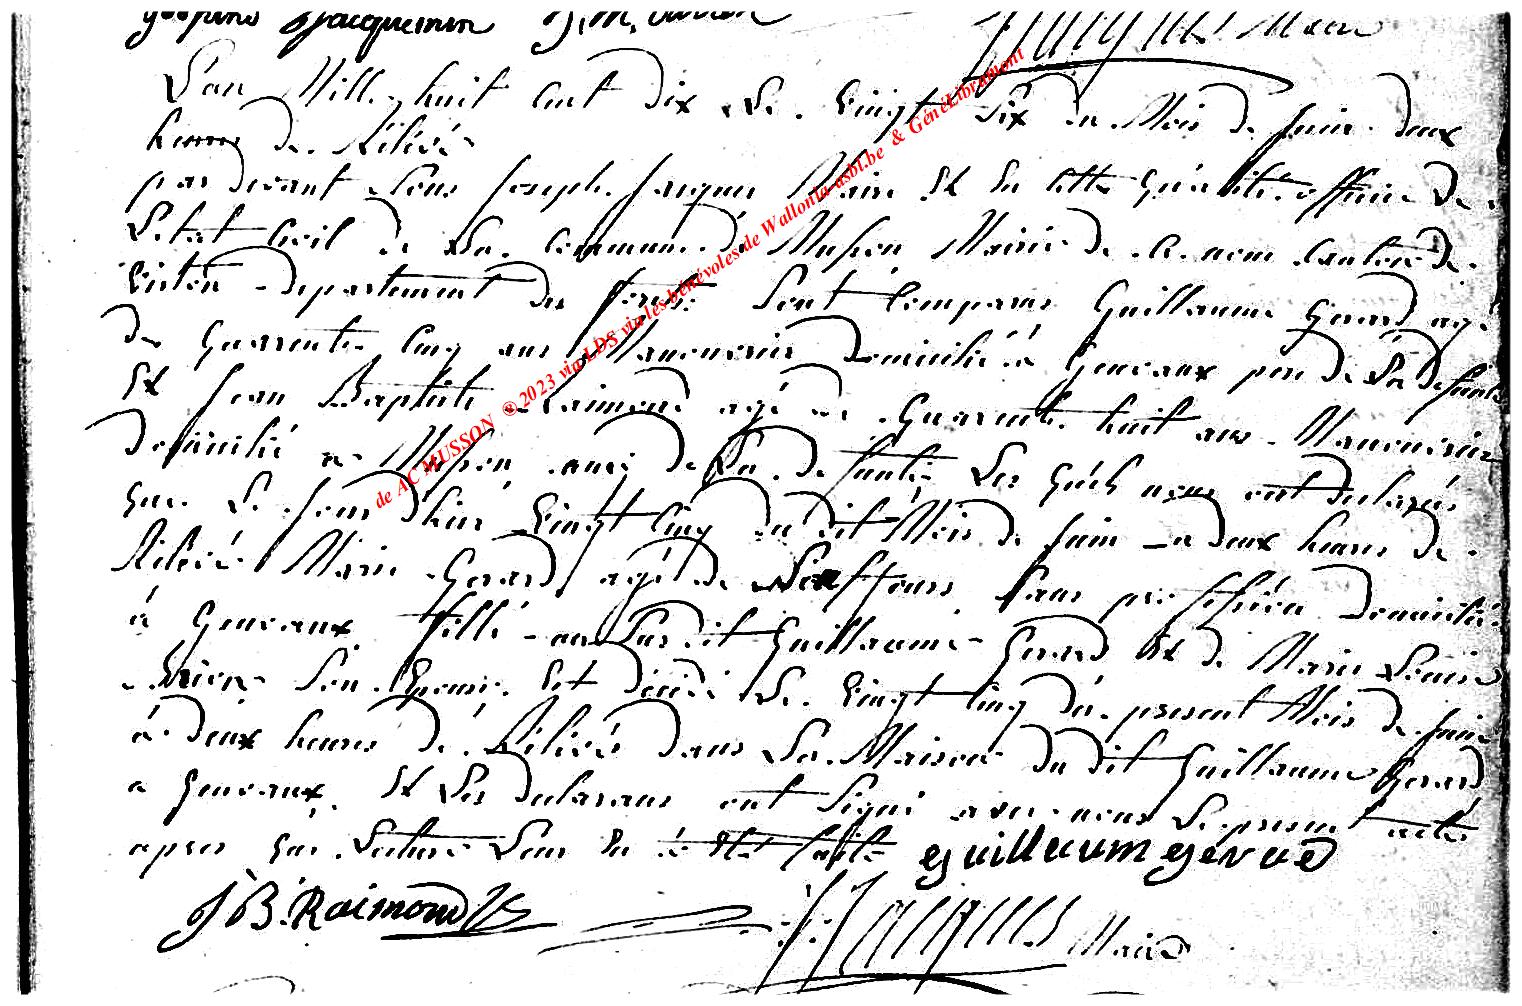 Jacquemin
L'an Mille huit Cent dix Le Vingt Six du Mois de Juin deux
heures de Rélévé
par devant Nous Joseph Jacques Maire Et En cette Qualité officier De
L'etat Civil de La Commune de Musson Mairie de Ce nom Canton de
Virton departement des forets Sont Comparus Guillaume Gerard agé
de Quarente Cinq ans Manouvrier Domicilié a Gennevaux pere De La defunte
Et Jean Baptiste Raimond agé de Quarente huit ans Manouvrier
domicilié a Musson amis de La defunte Les Quels nous ont declarés
que Le Jour d'hier Vingt Cinq du dit Mois de Juin a deux heures de
Rélévé Marie Gerard agé de Jours Sans profession Domicilié
á fille au Susdit Guillaume Gerard Et de Marie Louise
Son Epouse Est décédé Le Vingt Cinq du present Mois de Juin
á deux heures de Rélévé dans La Maison du dit Guillaume Gerard
a Et Les declarans ont Signé avec nous Le present acte
apres que Lecture Leur En á Eté faite Guillaum Gérard
J B. Raimond Jacques Maire
de AC MUSSON ®2023 via LDS via les bénévoles de Wallonia-asbl.be & GénéLibramont